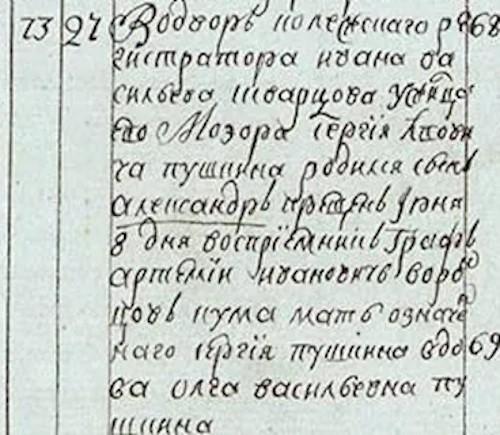 73 27 Во дворѣ колежскаго ре 68
гистратора ивана ва
сильева шварцова у жилца
его Моэора сергія львови
ча пушкина родился сынъ
александръ крещенъ июня
8 дня воспріемникъ графъ
артемiи ивановичь ворон
цовъ кума мать означе
наго сергія пушкина вдо 69
ва олга васильевна пу
шкина